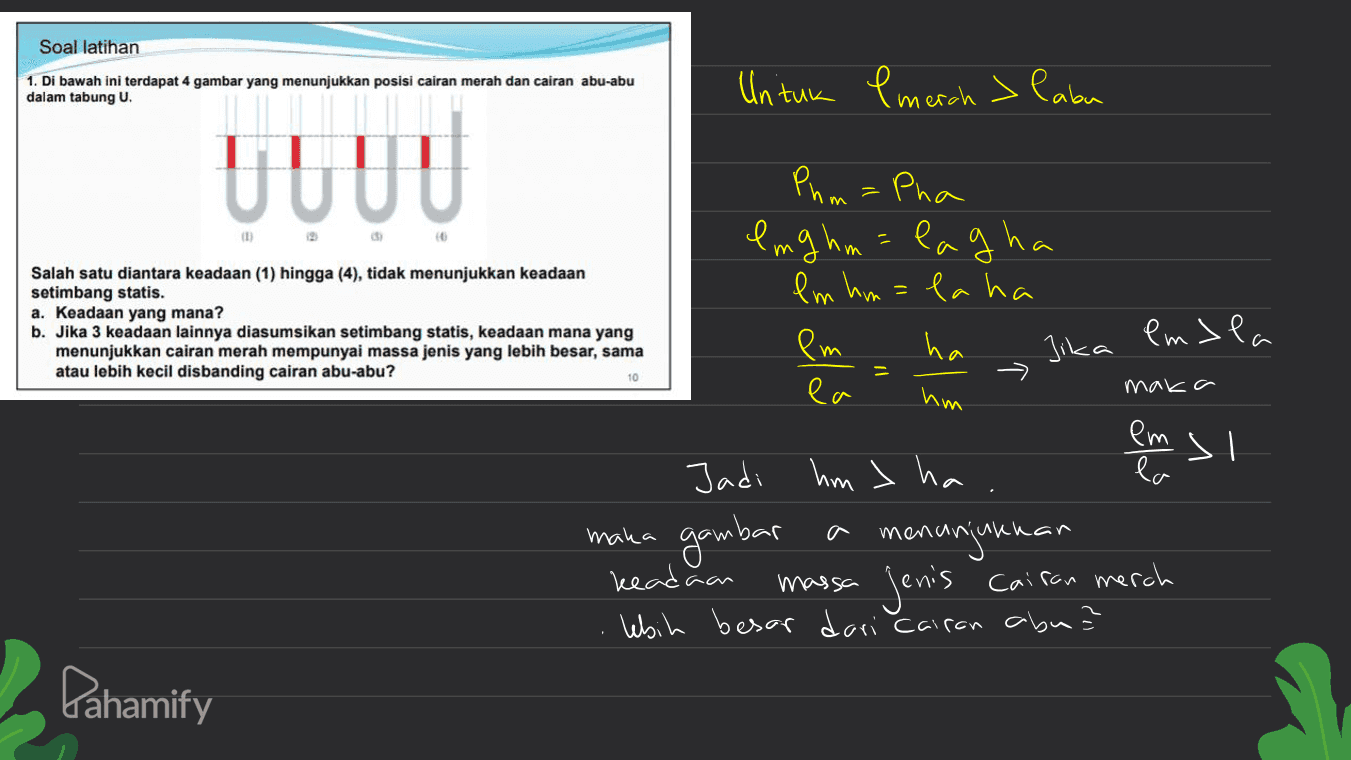 Soal latihan
1. Di bawah ini terdapat 4 gambar yang menunjukkan posisi cairan merah dan cairan abu-abu
dalam tabung U.
(1) (2) (3) (4)
Salah satu diantara keadaan (1) hingga (4), tidak menunjukkan keadaan
setimbang statis.
a. Keadaan yang mana?
b. Jika 3 keadaan lainnya diasumsikan setimbang statis, keadaan mana yang
menunjukkan cairan merah mempunyai massa jenis yang lebih besar, sama
atau lebih kecil disbanding cairan abu-abu?
10
Untuk ρmerah > ρabu
Phm = Pha
ρm g hm = ρa g ha
ρm hm = ρa ha
ρm/ρa = ha/hm → Jika ρm > ρa
maka
ρm/ρa > 1
Jadi hm > ha.
maka gambar a menunjukkan
keadaan massa jenis cairan merah
lebih besar dari cairan abu2
Pahamify